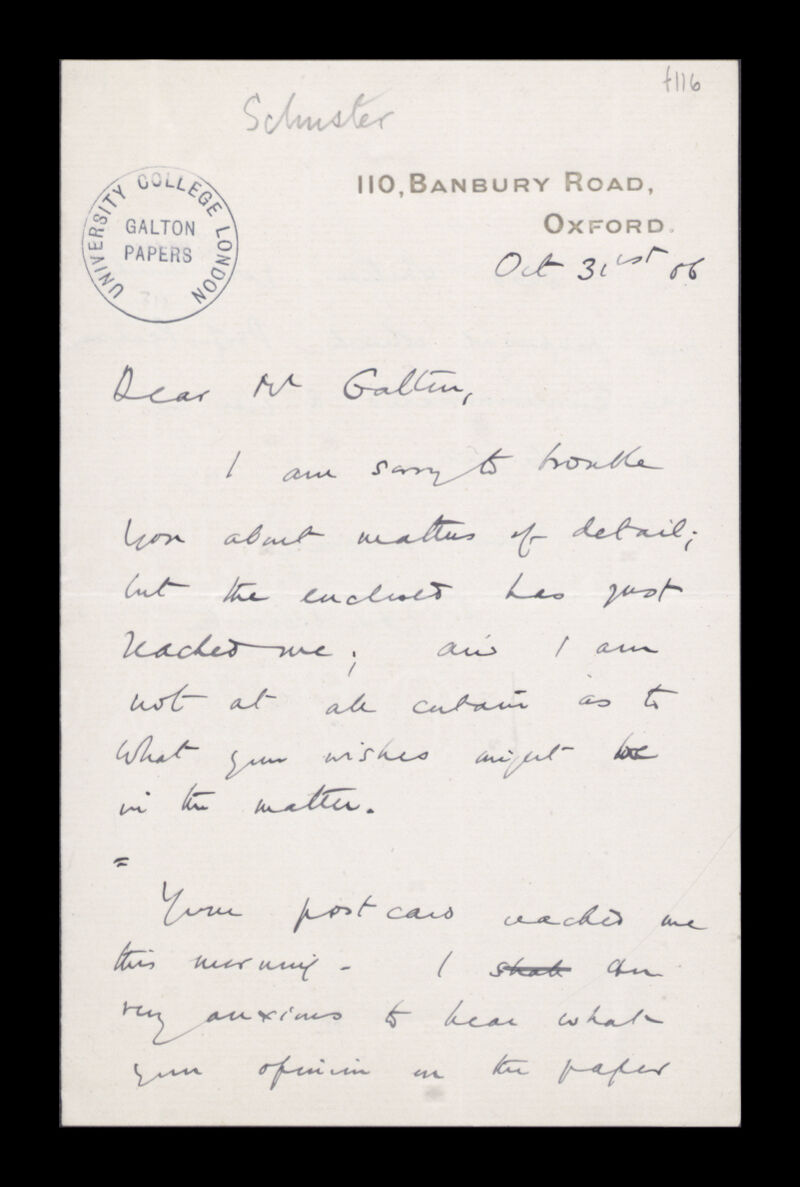 f116
Schuster
110, BANBURY ROAD,
OXFORD.
UNIVERSITY COLLEGE LONDON
GALTON
PAPERS
Oct 31st 06
Dear Mr Galton,
I am sorry to trouble
you about matters of detail;
but the enclosed has just
reached me; and I am
not at all certain as to
what your wishes might be
in the matter.
=
Your post card reached me
this morning - I shall am
very anxious to hear what
your opinion on the paper